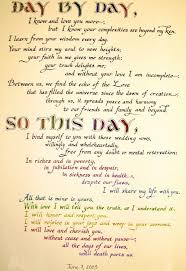 DAY BY DAY,
I know and love you more—
but I know your complexities are beyond my ken.
I learn from your wisdom every day.
Your mind stirs my soul to new heights;
your faith in me gives me strength;
your touch delights me,
and without your love I am incomplete—
Between us, we find the echo of the Love
that has filled the universe since the dawn of creation
through us, it spreads peace and harmony
to our friends and family and beyond.
SO THIS DAY,
I bind myself to you with these wedding vows,
willingly and wholeheartedly,
free from any doubt or mental reservation:
In riches and in poverty,
in jubilation and in despair,
in sickness and in health,
despite our flaws,
I will share my life with you.
All that is mine is yours.
With love I will tell you the truth, as I understand it.
I will honor and respect you.
I will rejoice in your joy and weep in your sorrow.
I will love and cherish you,
without cease and without pause—
all the days of our lives,
until death parts us
June 7, 2003